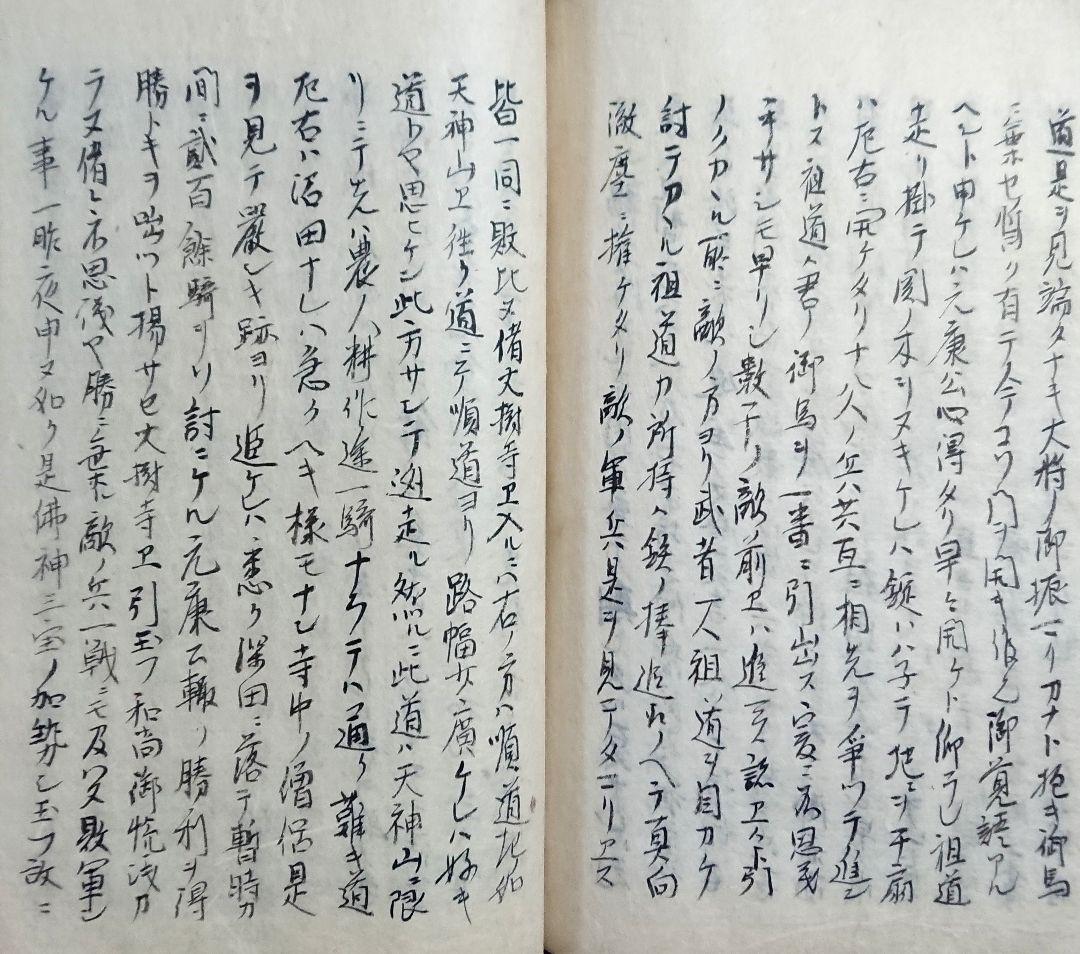 道是ヲ見端タナキ大将ノ御振マリカナト抱キ御馬
ニ乗セ暫ク有テ今コソ門ヲ開キ候ヘ御覚語アル
ヘシト申ケレハ元康公心得タリ早々開ケト仰テレ祖道
走リ掛テ関ノ木ヲヌキケレハ錠ハハ子テ地ヲ平扇
ハ左右ニ開ケタリ十八人ノ兵共互ニ相先ヲ争ツテ進
トス祖道ハ君ノ御馬ヲ一番ニ引出ス爰ニ不思
モサシモ早リシ数千ノ敵前ヱハ進
ノクカル所ニ敵ノ方ヨリ武者一人祖道ヲ目カケ
討テカヽル祖道カ所持ハ鉄ノ棒追取ノヘテ真向
微塵ニ摧ケタリ敵ノ軍兵是ヲ見テ
皆一同ニ敗北ス偖大樹寺ヱ入ルニハ右ノ方ハ順道左ハ如
天神山ヱ往ク道ニテ順道ヨリ路幅少々廣ケレハ好キ
道トヤ思ヒケン此方サシテ逃走ル然ルニ此道ハ天神山ニ限
リニテ先ハ農ノ耕作途一騎ナラテハ通リ難キ道
左右ハ沼田ナレハ急クヘキ様モナシ寺中ノ僧侶是
ヲ見テ嚴シキ跡ヨリ追ケレハ悉ク深田ニ落テ暫時カ
間ニ貳百餘騎ヲソ討ニケル元康公轍ク勝利ヲ得
勝トキヲ咄ツト揚サセ大樹寺ヱ引玉フ和尚御悦浅カ
ラヌ偖々不思儀ヤ勝ニ乗ル敵ノ兵一戦ニモ及ハス敗軍シ
ケル事一昨夜申ス如ク是佛神三宝ノ加勢シ玉フ故ニ